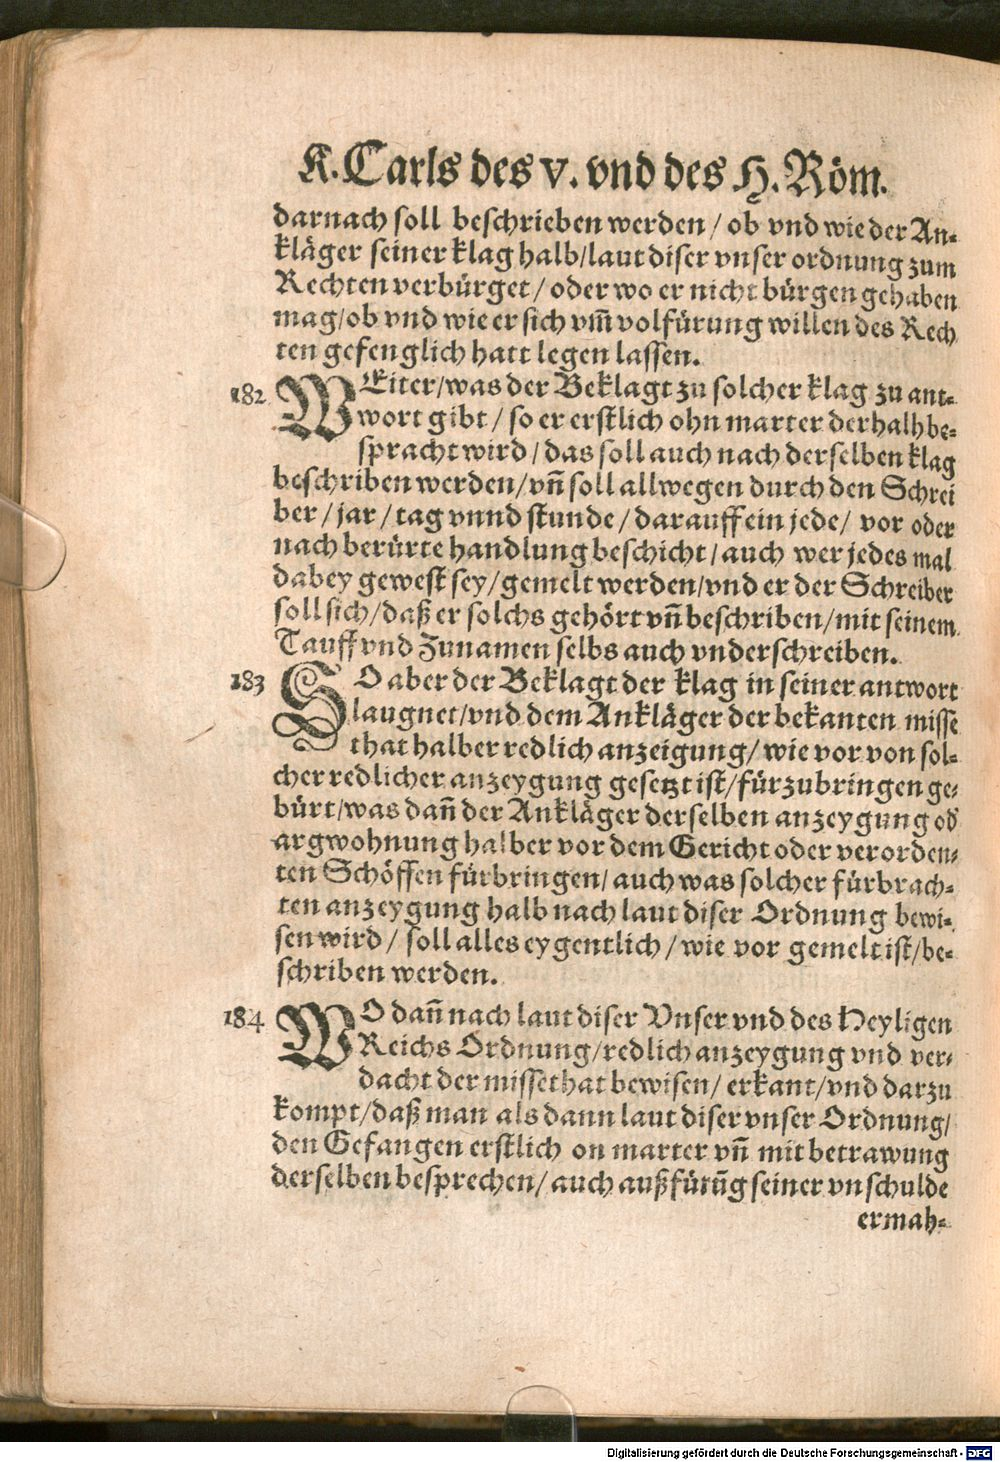 K. Carls des v. vnd des H. Röm.
darnach soll beschrieben werden / ob vnd wie der An-
kläger seiner klag halb/laut diser vnser ordnung zum
Rechten verbürget / oder wo er nicht bürgen gehaben
mag/ob vnd wie er sich vm̃ volfürung willen des Rech
ten gefenglich hatt legen lassen.
182 WEiter/was der Beklagt zu solcher klag zu ant-
wort gibt / so er erstlich ohn marter derhalb be-
spracht wird / das soll auch nach derselben klag
beschriben werden/vñ soll allwegen durch den Schrei
ber / jar / tag vnnd stunde / darauff ein jede / vor oder
nach berürte handlung beschicht / auch wer jedes mal
dabey gewest sey/gemelt werden/vnd er der Schreiber
soll sich/daß er solchs gehört vñ beschriben/mit seinem
Tauff vnd Zunamen selbs auch vnderschreiben.
183 SO aber der Beklagt der klag in seiner antwort
laugnet/vnd dem Ankläger der bekanten misse
that halber redlich anzeigung/ wie vor von sol-
cher redlicher anzeygung gesetzt ist/fürzubringen ge-
bürt/was dañ der Ankläger derselben anzeygung od̛
argwohnung halber vor dem Gericht oder verorden-
ten Schöffen fürbringen/ auch was solcher fürbrach-
ten anzeygung halb nach laut diser Ordnung bewi-
sen wird / soll alles eygentlich / wie vor gemelt ist/be-
schriben werden.
184 WO dañ nach laut diser Vnser vnd des Heyligen
Reichs Ordnung/redlich anzeygung vnd ver-
dacht der missethat bewisen/ erkant/vnd darzu
kompt/daß man als dann laut diser vnser Ordnung/
den Gefangen erstlich on marter vñ mit betrawung
derselben besprechen/ auch außfürũg seiner vnschulde
ermah-
Digitalisierung gefördert durch die Deutsche Forschungsgemeinschaft - DFG